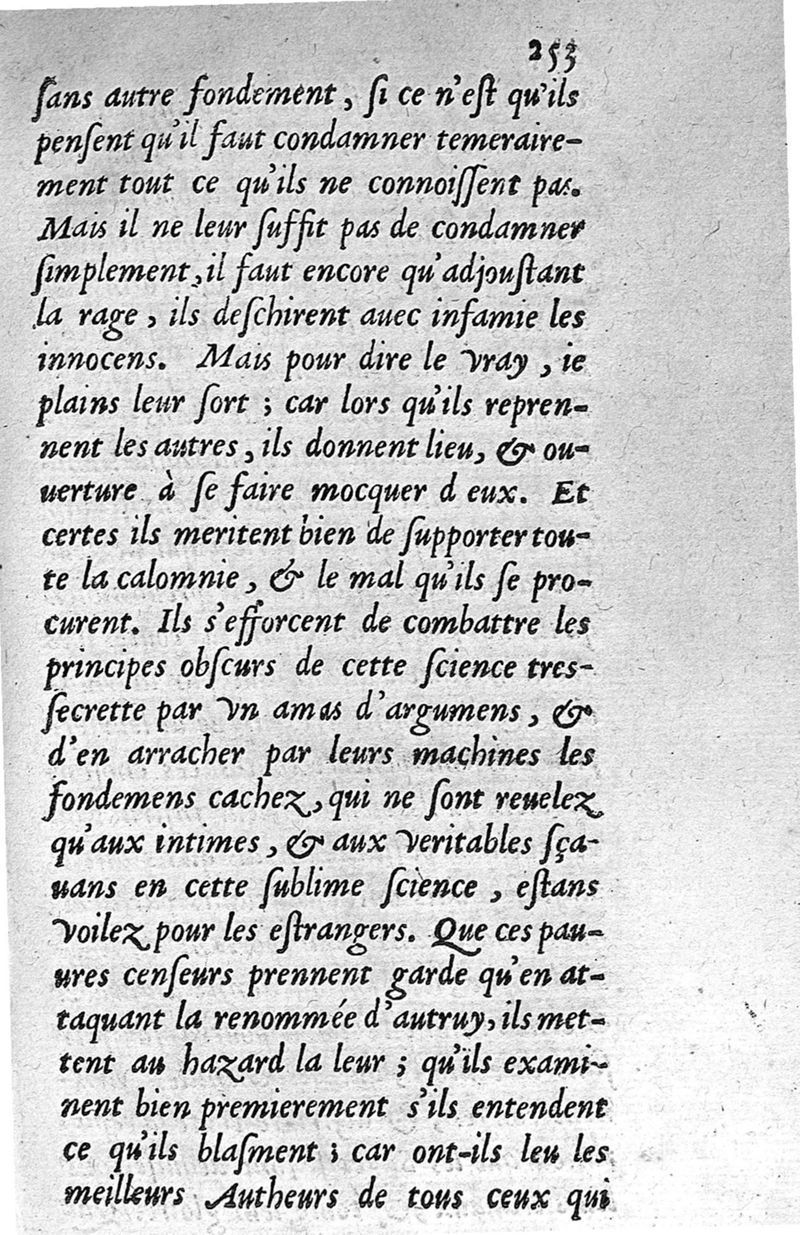 253
ſans autre fondement, ſi ce n'eſt qu'ils
penſent qu'il faut condamner temeraire-
ment tout ce qu'ils ne connoiſſent pas.
Mais il ne leur ſuffit pas de condamner
ſimplement, il faut encore qu'adjouſtant
la rage, ils deſchirent auec infamie les
innocens. Mais pour dire le vray, ie
plains leur ſort ; car lors qu'ils repren-
nent les autres, ils donnent lieu, & ou-
uerture à ſe faire mocquer d eux. Et
certes ils meritent bien de ſupporter tou-
te la calomnie, & le mal qu'ils ſe pro-
curent. Ils s'efforcent de combattre les
principes obſcurs de cette ſcience tres-
ſecrette par vn amas d'argumens, &
d'en arracher par leurs machines les
fondemens cachez, qui ne ſont reuelez
qu'aux intimes, & aux veritables ſça-
uans en cette ſublime ſcience, eſtans
voilez pour les eſtrangers. Que ces pau-
ures cenſeurs prennent garde qu'en at-
taquant la renommée d'autruy, ils met-
tent au hazard la leur ; qu'ils exami-
nent bien premierement s'ils entendent
ce qu'ils blaſment ; car ont-ils leu les
meilleurs Autheurs de tous ceux qui